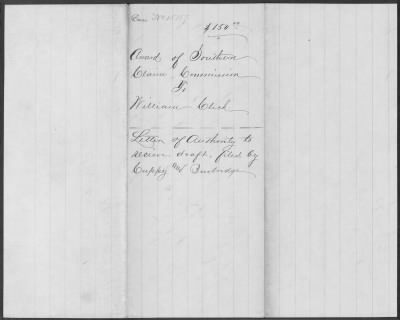 $150.00
Award of Southern
Claims Commission
To
William
Letter of Authority to
receive draft, filed by
Cuppy and Burbridge